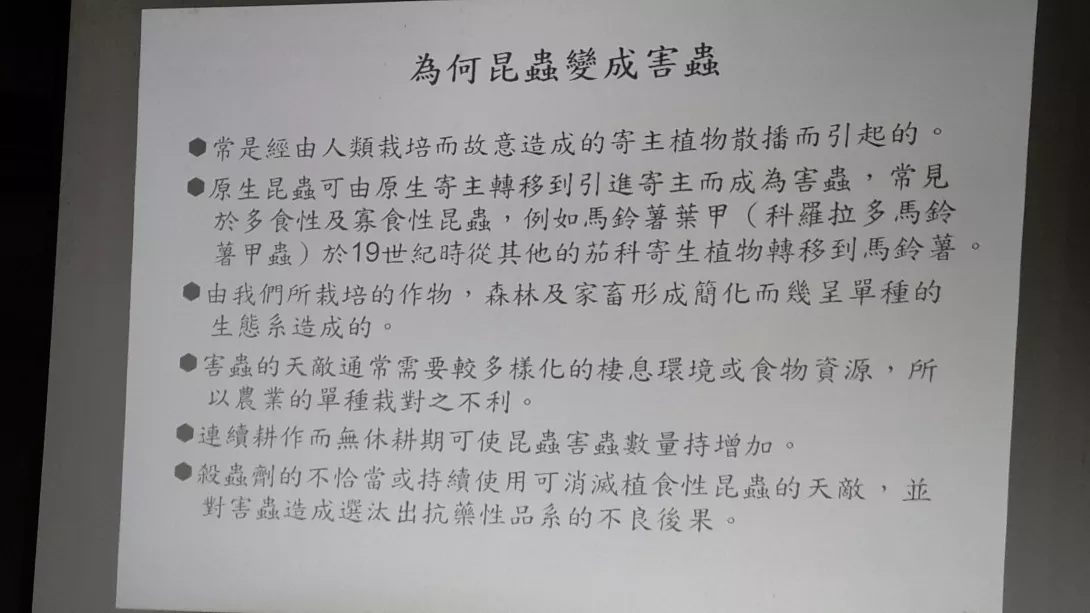 為何昆蟲變成害蟲
⬢常是經由人類栽培而故意造成的寄主植物散播而引起的。
⬢原生昆蟲可由原生寄主轉移到引進寄主而成為害蟲，常見
於多食性及寡食性昆蟲，例如馬鈴薯葉甲（科羅拉多馬鈴
薯甲蟲）於19世紀時從其他的茄科寄生植物轉移到馬鈴薯。
⬢由我們所栽培的作物，森林及家畜形成簡化而幾呈單種的
生態系造成的。
⬢害蟲的天敵通常需要較多樣化的棲息環境或食物資源，所
以農業的單種栽對之不利。
⬢連續耕作而無休耕期可使昆蟲害蟲數量持增加。
⬢殺蟲劑的不恰當或持續使用可消滅植食性昆蟲的天敵，並
對害蟲造成選汰出抗藥性品系的不良後果。